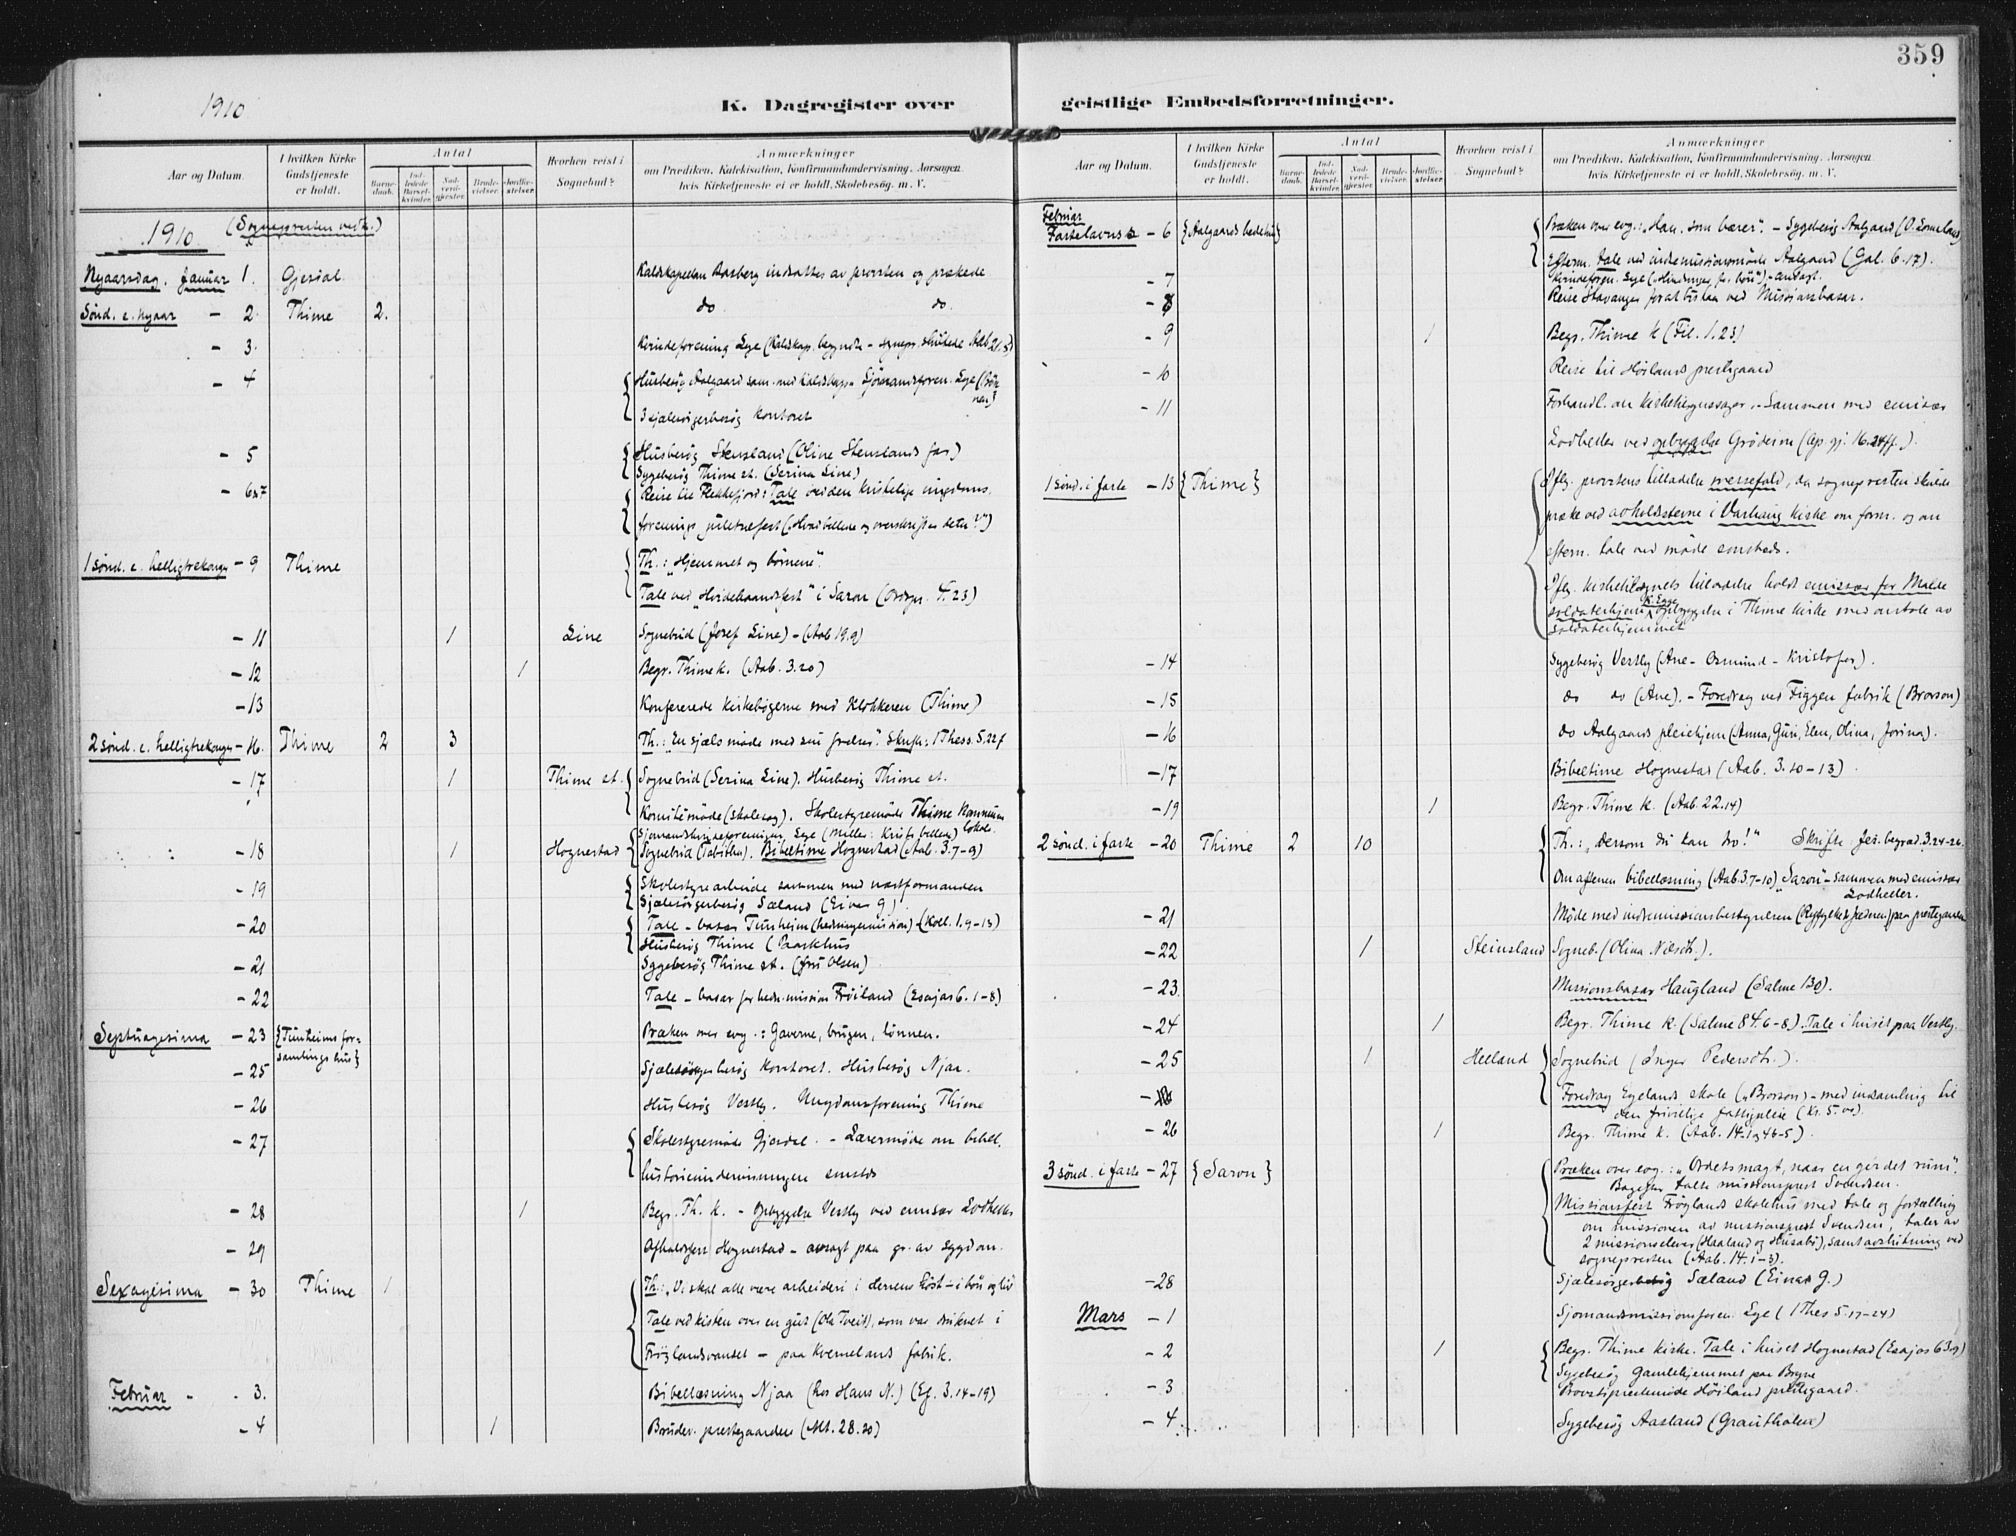 359
1910
K. Dagregister over
geistlige Embedsforretninger.
Aar og Datum.
I hvilken Kirke Gudstjeneste er holdt.
Antal
Barnedaab.
Indledede Barselkvinder.
Nadverdgjester.
Brudevielser.
Jordfæstelser.
Hvorhen reist i Sognebud?
Anmærkninger
om Prædiken, Katekisation, Konfirmandundervisning, Aarsagen
hvis Kirketjeneste ei er holdt, Skolebesøg, m. V.
1910 (Sognepresten vedk.)
Nyaarsdag. Januar 1. Gjesdal Kaldskapellan Aasberg indsattes av provsten og prækede
Sønd. e. nyaar - 2. Thime 2. do do.
- 3. Kvindeforening Lye (Kaldskap. begyndte - sognepr. sluttede Aab 21.5)
- 4 Husbesøg Aalgaard sam. med Kaldskapn. Sjømandsforen. Lye (bøn
nen)
3 sjælesørgerbesøg kontoret
- 5 Husbesøg Stensland (Oline Stenslands far)
Sygebesøg Thime st. (Serina Line)
- 6 & 7 Reise til Flekkefjord: Tale ved den kristelige ungdoms
forenings juletræfest ("Hvis billede og overskrift er dette?")
1 sønd. e. helligtrekonger - 9 Thime Th.: "Hjemmet og børnene".
Tale ved "Hvidebaandsfest" i Saron (Ordspr. 4.23)
- 11 1 Line Sognebud (Josef Line) - (Aab 19.9)
- 12 1 Begr. Thime k. (Aab. 3.20)
- 13 Konfererede kirkebøgerne med Klokkeren (Thime)
2 sønd. e. helligtrekonger - 16. Thime 2 3 Th.: "En sjæls møde med sin frelser". Skrift: 1 Thess. 5.22f
- 17 1 Thime st. Sognebud (Serina Line). Husbesøg Thime st.
Komitémøde (skolesag). Skolestyremøde Thime kommunelokale.
Sjømandskvindeforeningen, Lye
- 18 1 Hognestad Sognebud (Tabitha). Bibeltime Hognestad (Aab. 3.7-9)
- 19 Skolestyrearbeide sammen med næstformanden
Sjælesørgerbesøg Sæland (Einar G)
- 20 Tale - basar Tunheim (hedningemission) (Koll. 1.9-13)
Husbesøg Thime (Paaskhus
- 21 Sygebesøg Thime st. (fru Olsen)
- 22 Tale - basar for hedn. mission Frøiland (Esajas 6. 1-8)
Septuagesima - 23 {Tunheims forsamlingshus} Præken over evg.: Gaverne, brugen, lønnen.
- 25 Sjælesørgerbesøg kontoret. Husbesøg Njaa.
- 26 Husbesøg Vestly. Ungdomsforening Thime
- 27 Skolestyremøde Gjesdal. - Lærermøde om bibel.
historieundervisningen
- 28 1 Begr. Th. k. - Opbyggelse Vestly ved emisær Lodhellen
- 29 Afholdsforen Hognestad - avsagt paa gr. av sygdom.
Sexagesima - 30 Thime 1 Th.: "Vi skal alle være arbeidere i Herrens høst - i bøn og liv
Tale ved kisten over en gut (Ola Tveit), som var druknet i
Frøylandsvandet - paa Kvernelands fabrik.
Februar - 3. Bibellæsning Njaa (hos Hans N.) (Ef. 3.14-19)
- 4 1 Brudev. prestegaarden (Mt. 28.20)
Februar
Fastelavns s - 6 {Aalgaards bedehus} Præken over evg.: "Han, som bærer". - Sygebesøg Aalgaard
Efterm. tale ved indremissionsmøde Aalgaard (Gal. 6.17).
- 7 Kvindeforen. Lye ("Hindringer for bøn") - andagt.
- 8 Reise Stavanger for at bistaa ved Missionsbasar.
- 9 1 Begr. Thime k (Fil. 1.23)
- 10 Reise til Høilands prestegaard
- 11 Forhandl. om kirketiendssager. - Sammen med emisær
Lodhellen ved opbyggelse Grødeim (Ap. gj. 16.24ff.).
1 sønd. i faste - 13 {Thime} Iflg. provstens tilladelse messefald, da sognepresten skulde
præke ved avholdsstevne i Varhaug kirke om form. og om
efterm. tale ved møde
Iflg. kirketilsynets tilladelse holdt emisær for Malde
soldaterhjem K. Egge opbyggelse i Thime kirke med omtale av
soldaterhjemmet
- 14 Sygebesøg Vestly (Ane - Osmund - Kristofer).
- 15 do do (Ane). - Foredrag ved Figgen fabrik (Brorson)
- 16 do Aalgaards pleiehjem (Anna, Guri, Elen, Olina, Jorina).
- 17 Bibeltime Hognestad (Aab. 3.10-13)
- 19 1 Begr. Thime k. (Aab. 22.14)
2 sønd. i faste - 20 Thime 2 10 Th.: "Dersom du kan tro!" Skrifte Jer. begræd. 3.24-26.
Om aftenen bibellæsning (Aab. 3.7-10) "Saron" - sammen med emisær
Lodhellen.
- 21 Møde med indremissionsbestyreren (Ryfylke & Jæderen) paa prestegaarden
- 22 1 Steinsland Sogneb. (Olina Nilsdt.).
- 23. Missionsbasar Haugland (Salme 130).
- 24 1 Begr. Thime k. (Salme 84.6-8). Tale i huset paa Vestly.
- 25 1 Helland Sognebud (Inger Pedersdt.).
Foredrag Egelands skole ("Brorson") - med indsamling til
den frivillige fattigpleie (Kr. 5.00).
- 26 1 Begr. Thime k. (Aab. 14.1 & 4b-5).
3 sønd. i faste - 27 {Saron} Præken over evg.: "Ordets magt, naar en gir det rum".
Bagefter talte missionsprest Svendsen.
Missionsfest Frøylands skolehus med tale og fortælling
om missionen av missionsprest Svendsen, taler av
2 missionselever (Haaland og Husabø), samt avslutning ved
sognepresten (Aab. 14.1-3).
- 28 Sjælesørgerbesøg Sæland (Einar G.)
Mars - 1 Sjømandsmissionsforen. Lye (1 Thes 5.17-24)
- 2 1 Begr. Thime kirke. Tale i huset Hognestad (Esajas 63.9)
Sygebesøg Gamlehjemmet paa Bryne
- 3 Provstiprestemøde Høiland prestegaard.
- 4 Sygebesøg Aasland (Grautholen)